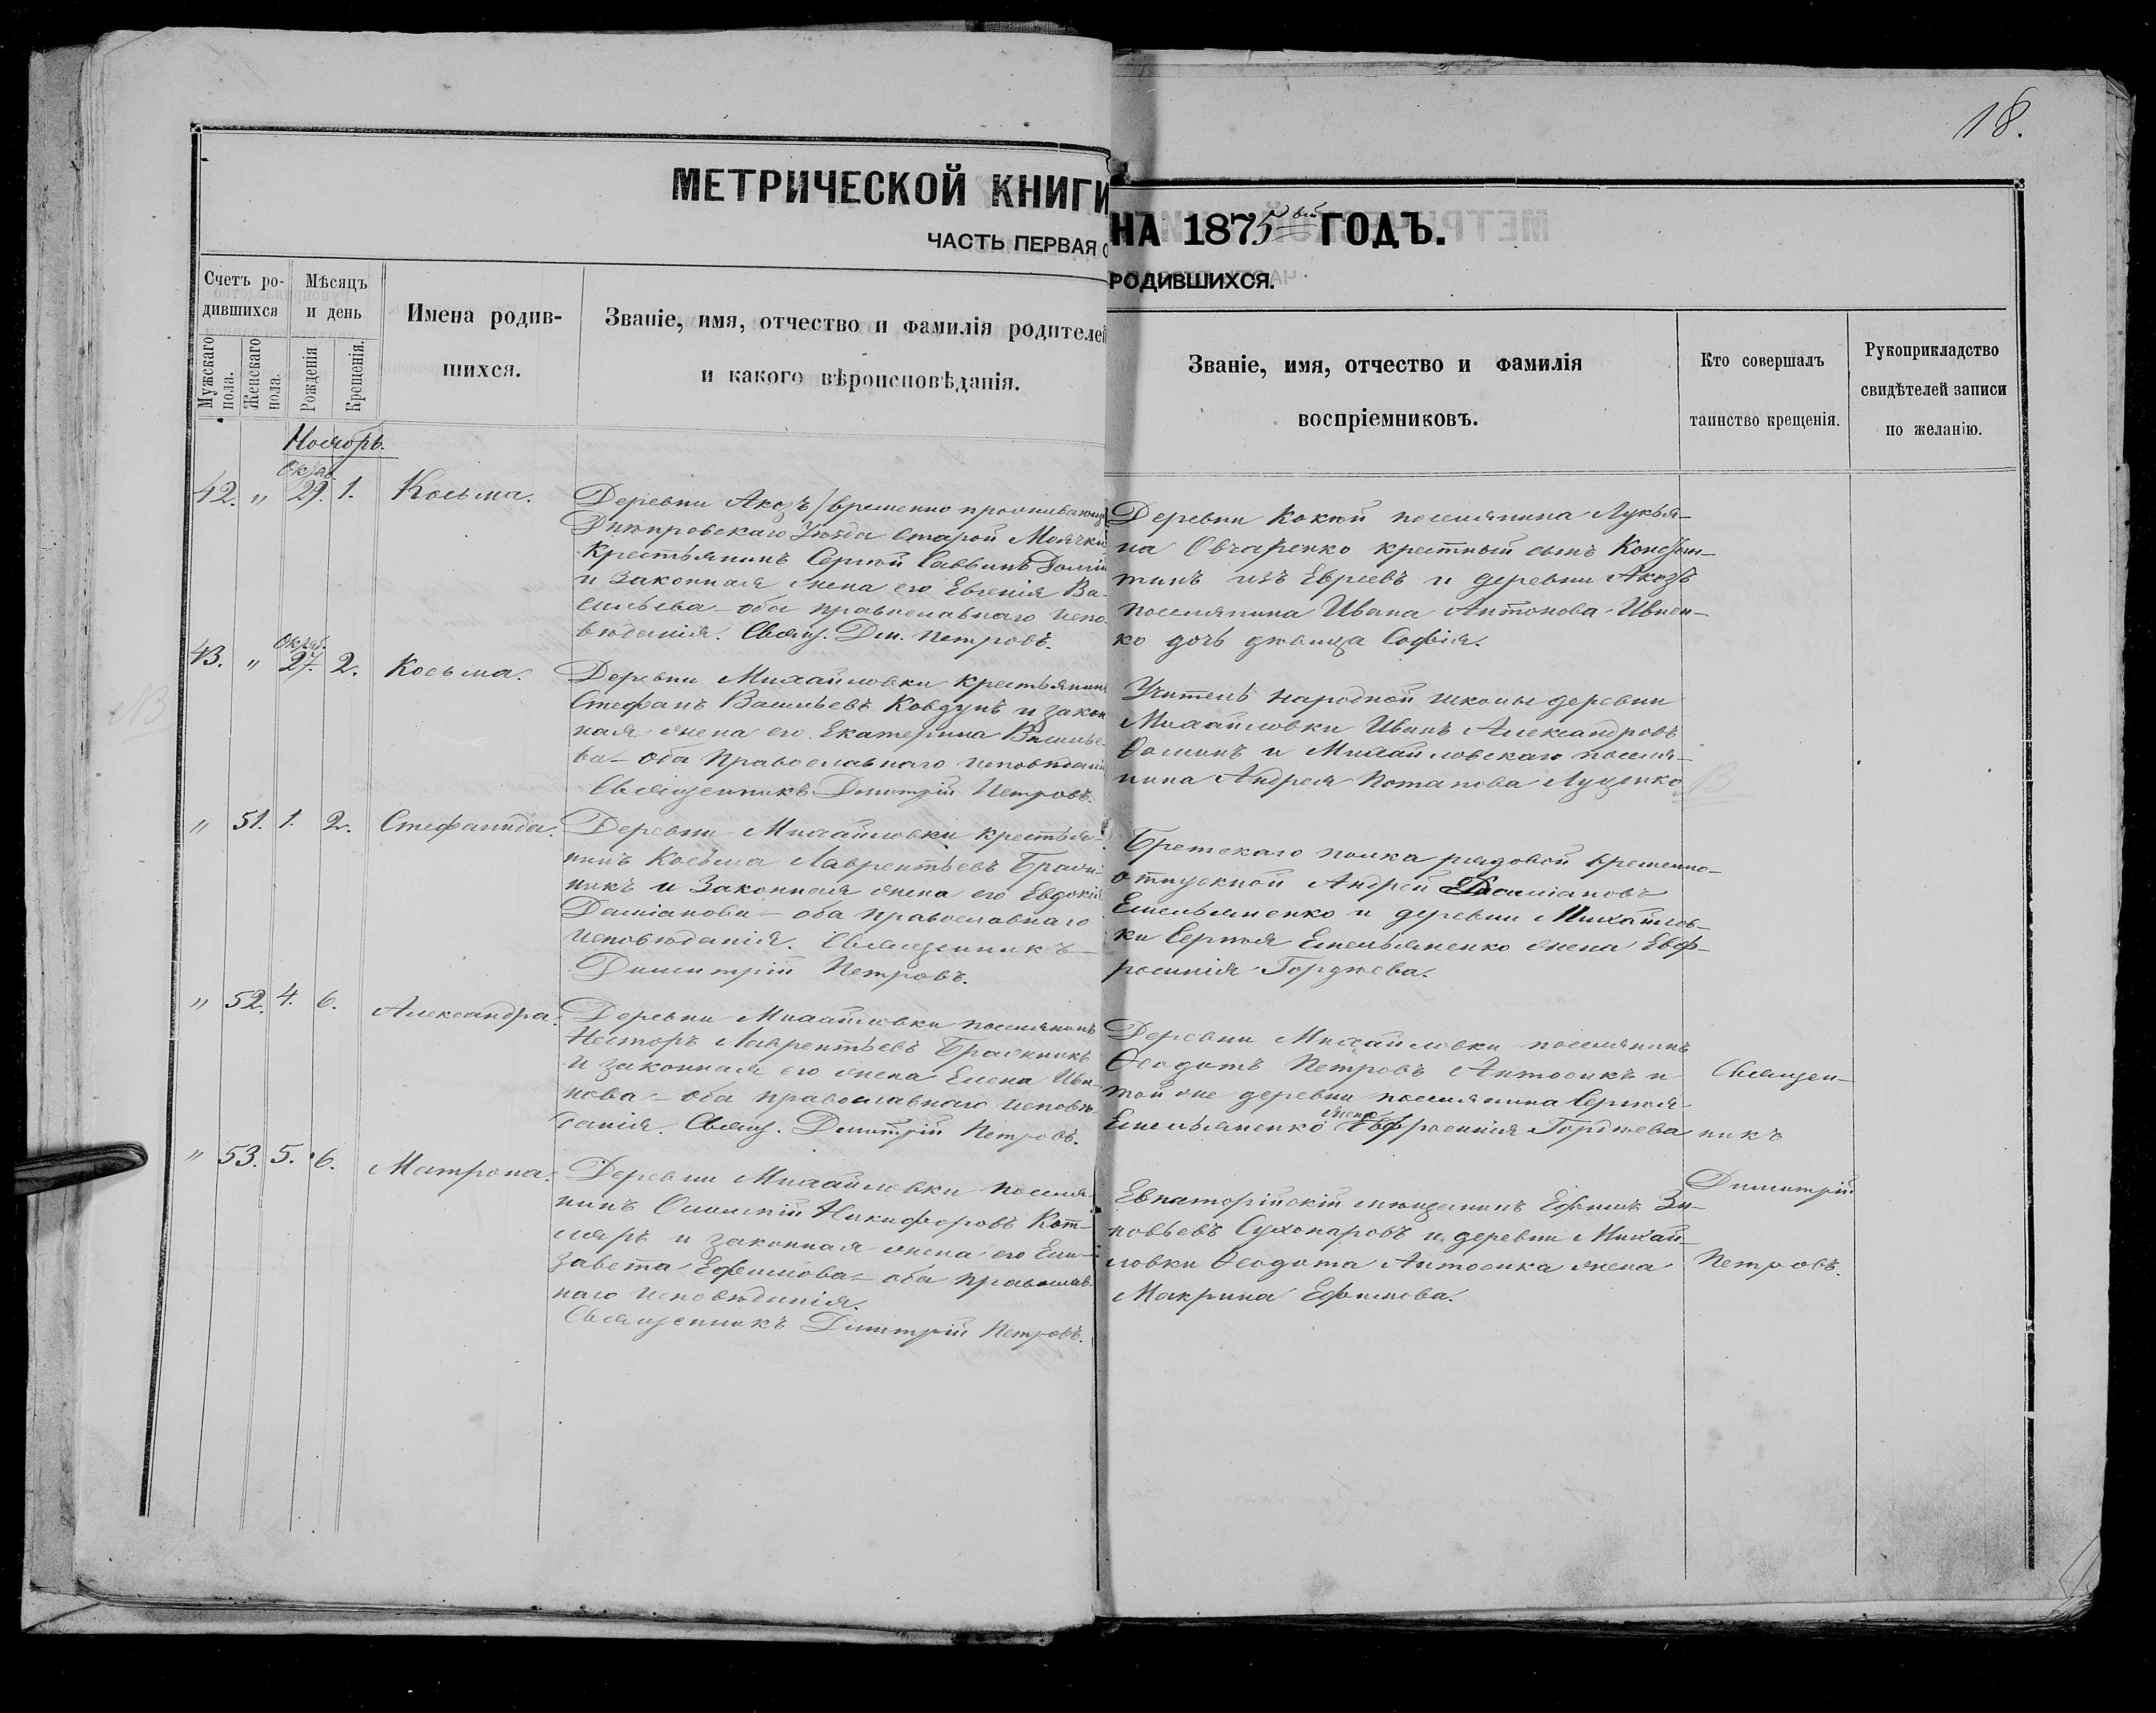 18.
МЕТРИЧЕСКОЙ КНИГИ
НА 1875ый ГОДЪ.
ЧАСТЬ ПЕРВАЯ О
РОДИВШИХСЯ.
Счетъ ро-
дившихся
Мужскаго пола.
Женскаго пола.
Мѣсяцъ
и день
Рожденія
Крещенія.
Имена родив-
шихся.
Званіе, имя, отчество и фамилія родителей
и какого вѣроисповѣданія.
Званіе, имя, отчество и фамилія
воспріемниковъ.
Кто совершалъ
таинство крещенія.
Рукоприкладство
свидѣтелей записи
по желанію.
Ноябрь.
Октяб.
42. " 29. 1. Косьма.
Деревни Акозъ (временно проживающ
Днѣпровскаго Уѣзда Старой Маячки
Крестьянинъ Сергѣй Саввинъ
и Законная жена его Евгенія Ва-
сильева - оба православнаго испо-
вѣданія. Свящ. Дм. Петровъ.
Деревни Кокей поселянина Лукья-
на Овчаренко крестный сынъ Констан-
тинъ изъ Евреевъ и деревни Акозъ
поселянина Ивана Антонова Ивнен-
ко дочь дѣвица Софія.
Октяб.
43. " 27. 2. Косьма.
Деревни Михайловки крестьянинъ
Стефанъ Васильевъ Ковдунъ и закон
ная жена его Екатерина Василье-
ва - оба Православнаго исповѣданія
Священникъ Димитрій Петровъ.
Учитель народной школы деревни
Михайловки Иванъ Александровъ
Ѳоминъ и Михайловскаго поселя-
нина Андрея Потапова Луценко
" 51. 1. 2. Стефанида.
Деревни Михайловки крестья-
нинъ Косьма Лаврентьевъ Браж-
никъ и Законная жена его Евдокія
Даміанова - оба православнаго
исповѣданія. Священникъ
Димитрій Петровъ.
Брестскаго полка рядовой временно-
отпускной Андрей Даміановъ
Емельяненко и деревни Михайлов-
ки Сергѣя Емельяненко жена Евф-
росинія Гордѣева.
" 52. 4. 6. Александра.
Деревни Михайловки поселянинъ
Несторъ Лаврентьевъ Бражникъ
и законная его жена Елена Ива-
нова - оба православнаго исповѣ-
данія. Свящ. Димитрій Петровъ.
Деревни Михайловки поселянинъ
Ѳеодотъ Петровъ Антосикъ и
той же деревни поселянина Сергѣя
Емельяненко жена Евфросинія Гордѣева
" 53. 5. 6. Матрона.
Деревни Михайловки поселя-
нинъ Никифоровъ Кот-
ляръ и законная жена его Ели-
завета Ефимова - оба православ-
наго исповѣданія.
Священникъ Димитрій Петровъ.
Евпаторійскій мѣщанинъ Ефимъ Зи-
новьевъ Сухопаровъ и деревни Михай-
ловки Ѳеодота Антосика жена
Макрина Ефимова.
Священ-
никъ
Димитрій
Петровъ.